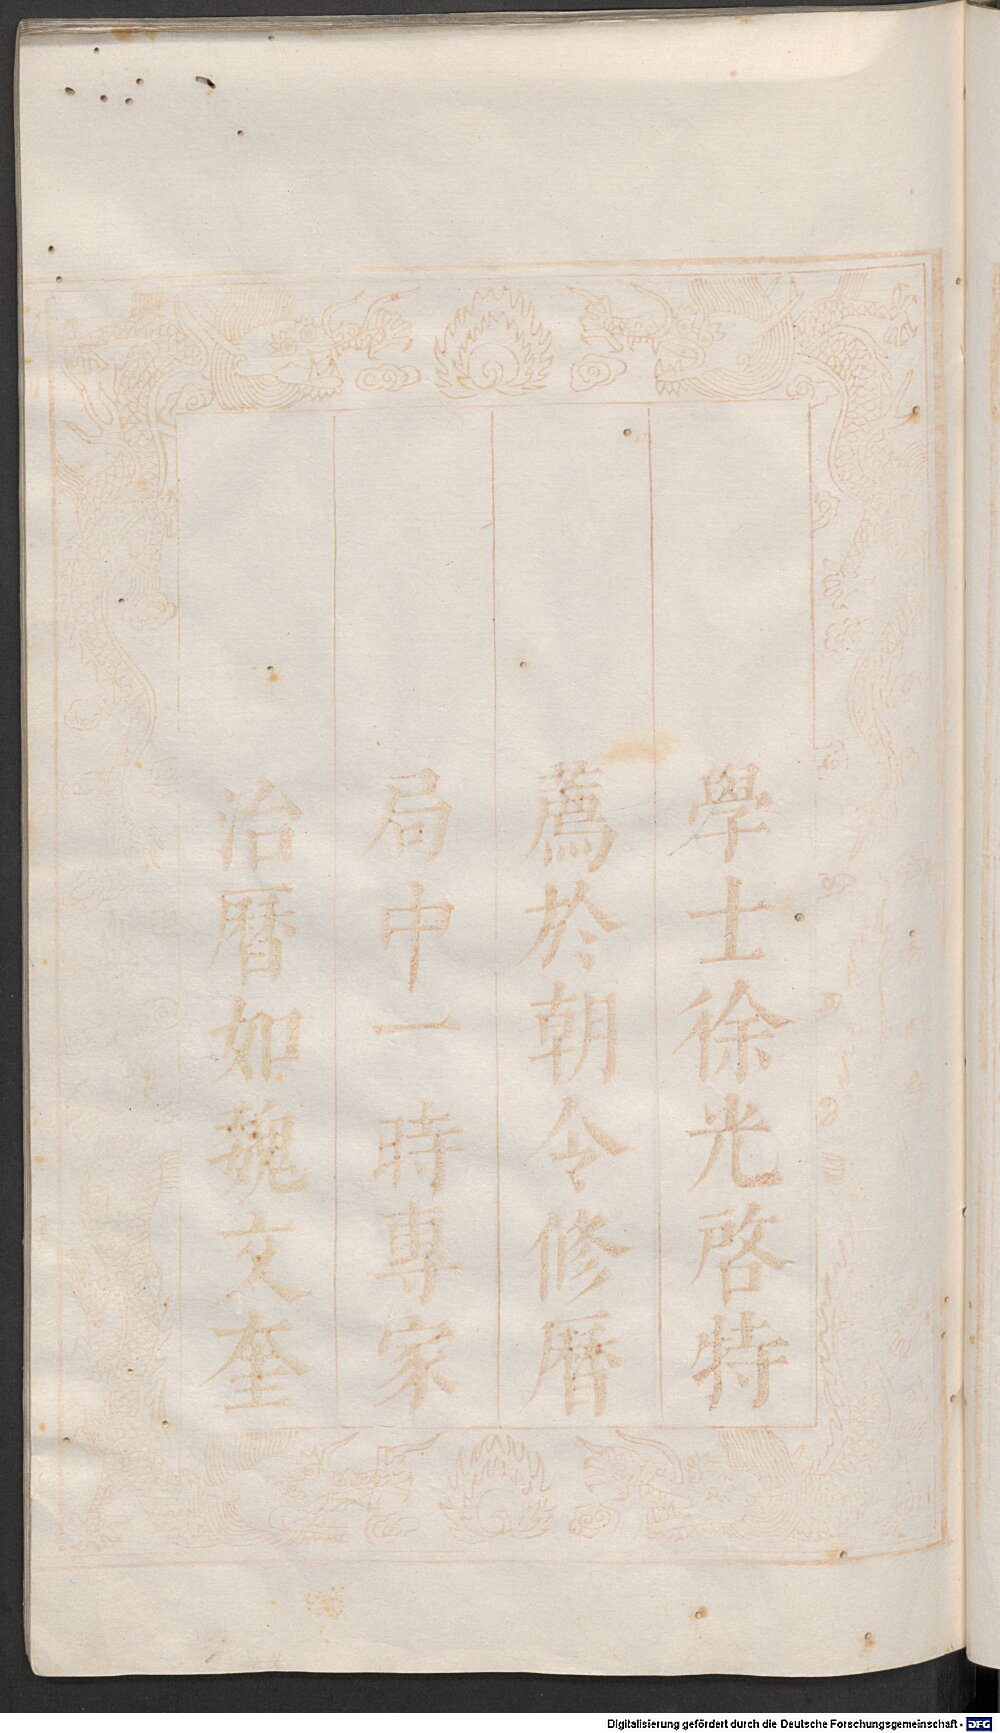 學士徐光啓特
薦於朝令修曆
局中一時專家
治曆如魏文奎
Digitalisierung gefördert durch die Deutsche Forschungsgemeinschaft - DFG